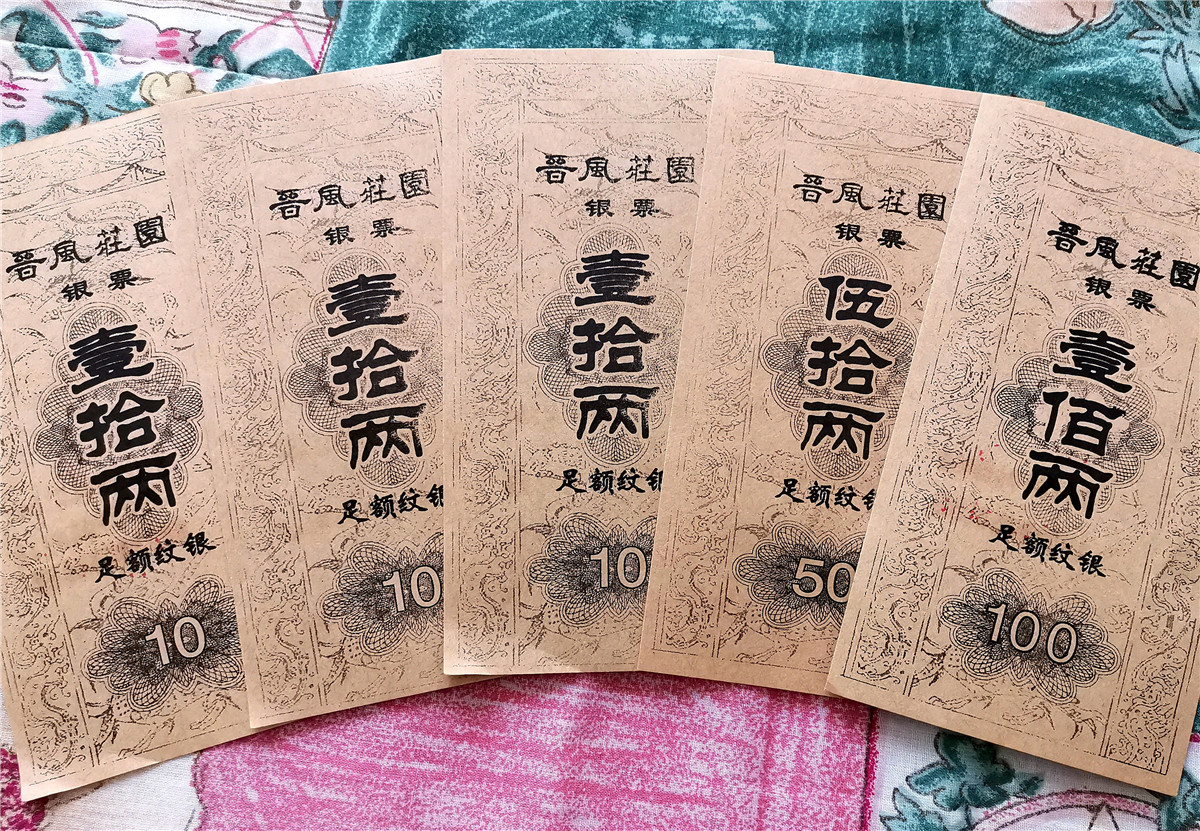 晉風莊園
银票
壹拾两
足额纹银
10
晉風莊園
银票
壹拾两
足额纹银
10
晉風莊園
银票
壹拾两
足额纹银
10
晉風莊園
银票
伍拾两
足额纹银
50
晉風莊園
银票
壹佰两
足额纹银
100